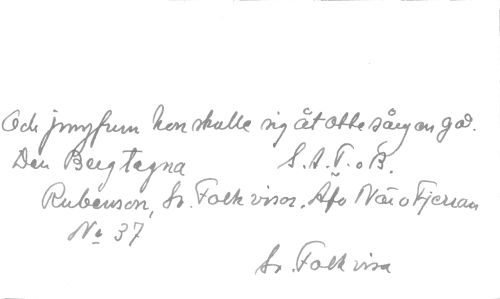 Och jungfrun hon skulle sig åt ottesången gå.
Den Bergtagna S.A.T.o B.
Rubenson, Sv. Folkvisor. När o Fjerran
No 37
Sv. Folkvisa